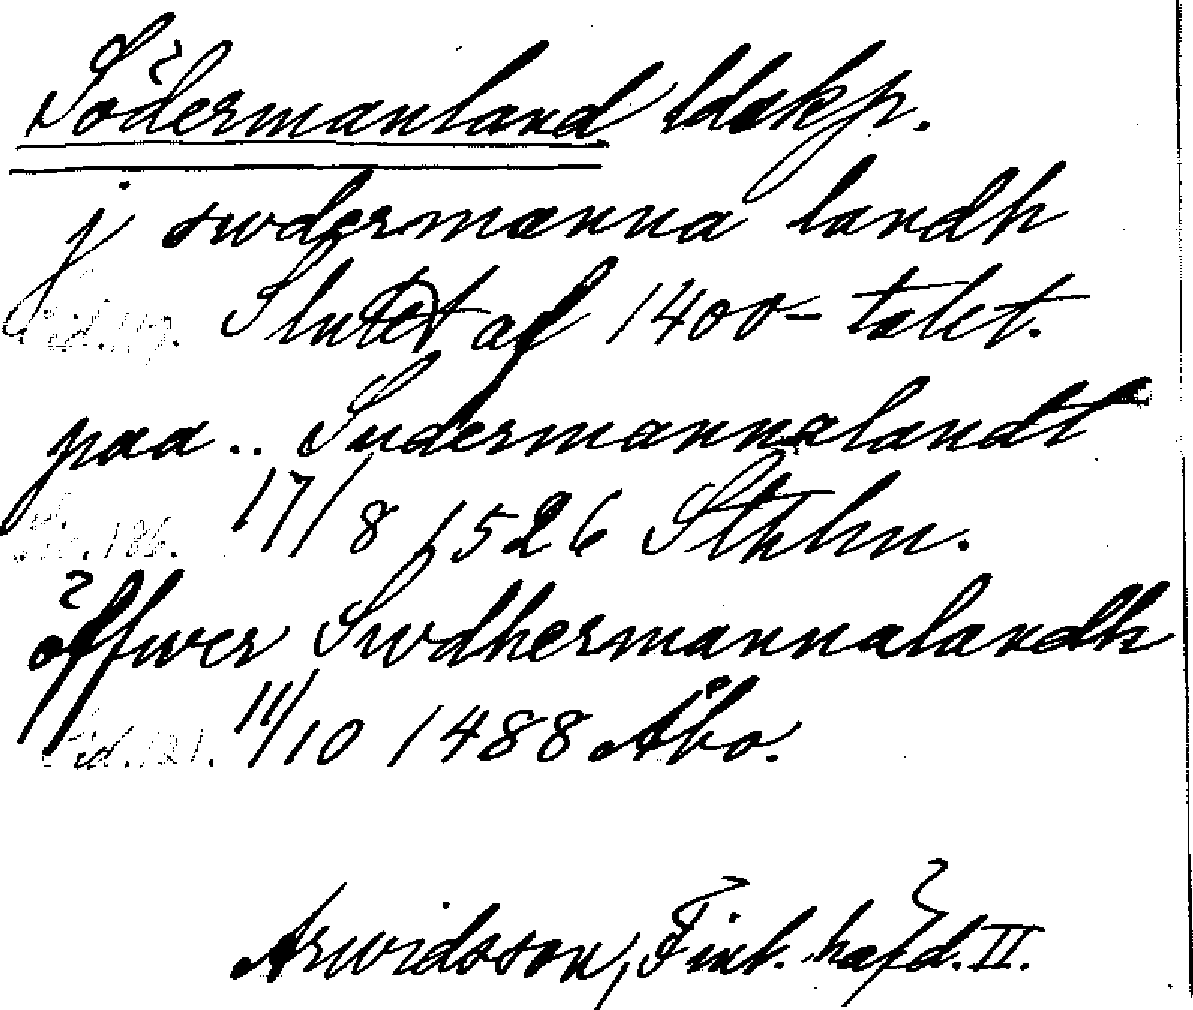 Södermanland ldskp.
j swdermanna landh
Sid. 119. Slutet af 1400-talet.
paa .. Sudermannalandt
Sid. 186. 17/8 1526 Sthlm.
öffwer Swdhermannalandh
Sid. 121. 11/10 1488 Åbo.
Arwidsson, Finl. häfd. II.